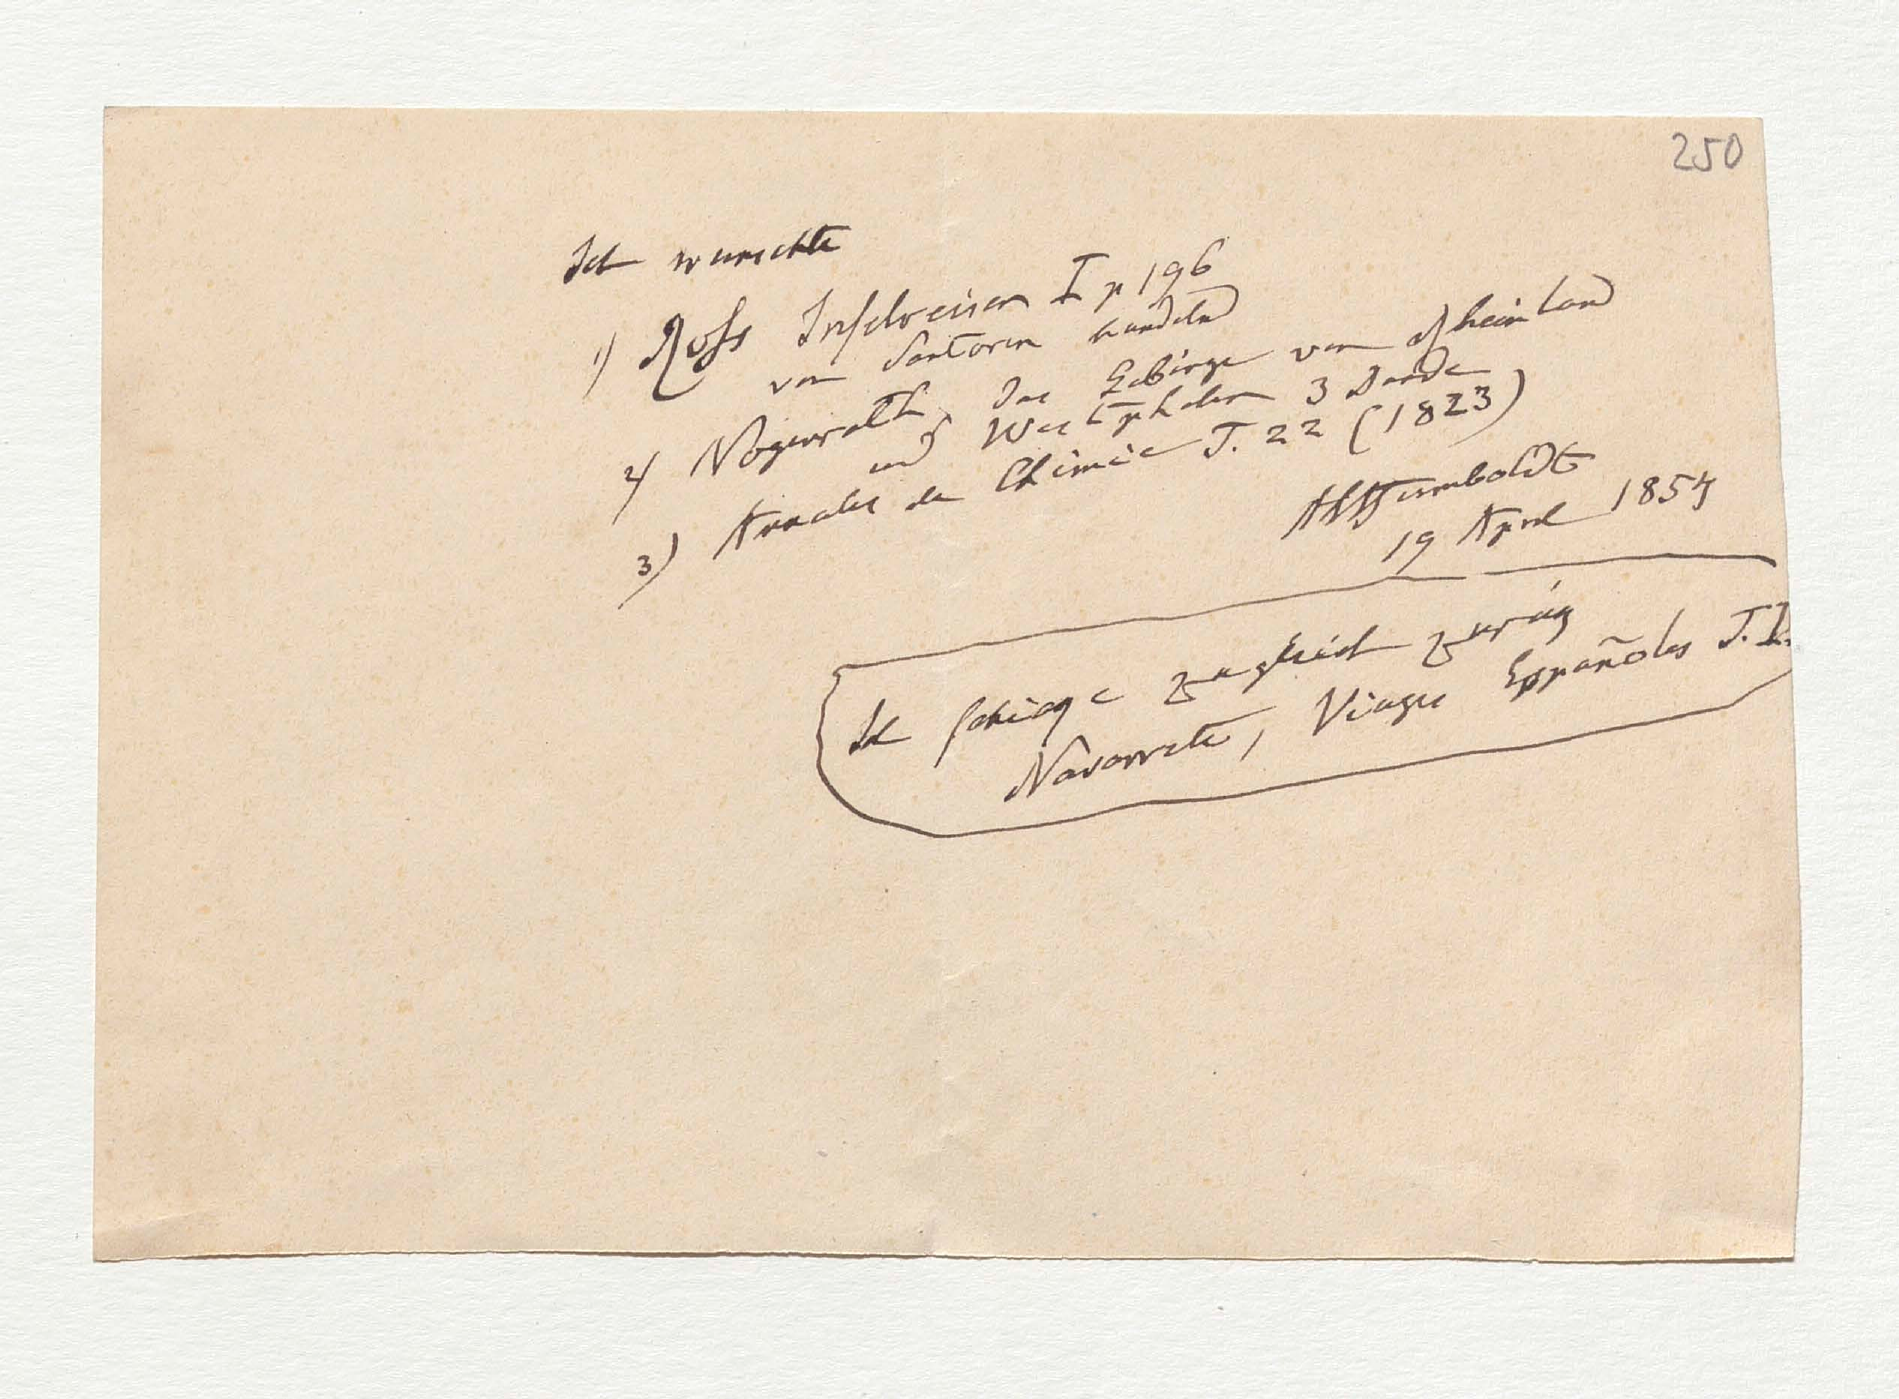 250
Ich wunschte
1) Ross Inselreisen I p 196
von Santorin handelnd
2) Nögerrath, Das Gebirge von Rheinland
und Westphalen 3 Bande
3) Annales de Chimie T. 22 (1823)
AlHumboldt
19 April 1854
Ich schicke zugleich zurük
Navarrete, Viages Españoles T. I.